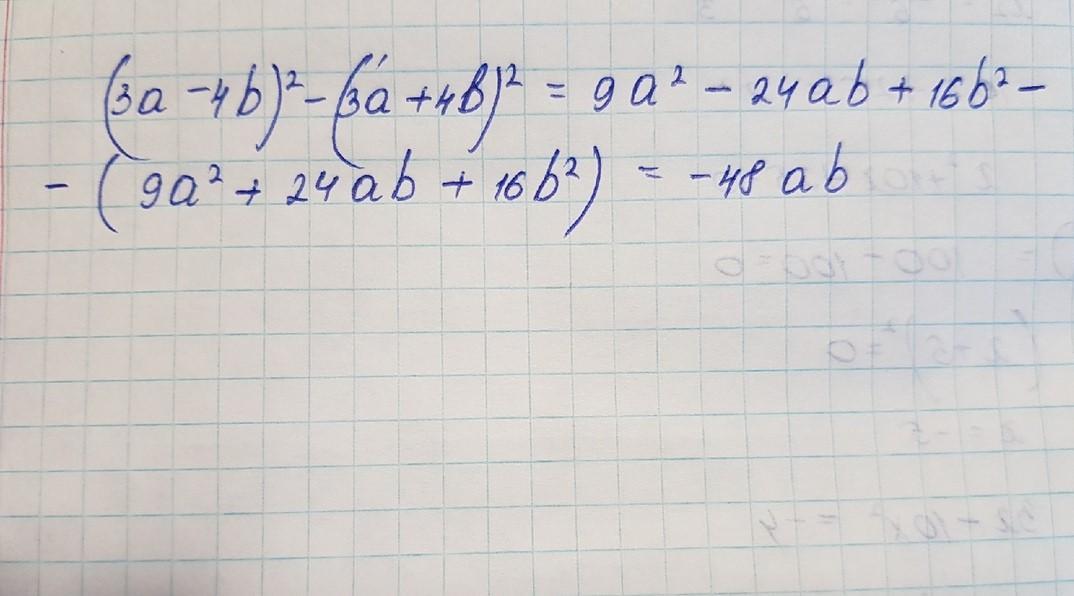 (3a - 4b)² - (3a + 4b)² = 9a² - 24ab + 16b² -
- (9a² + 24ab + 16b²) = -48ab